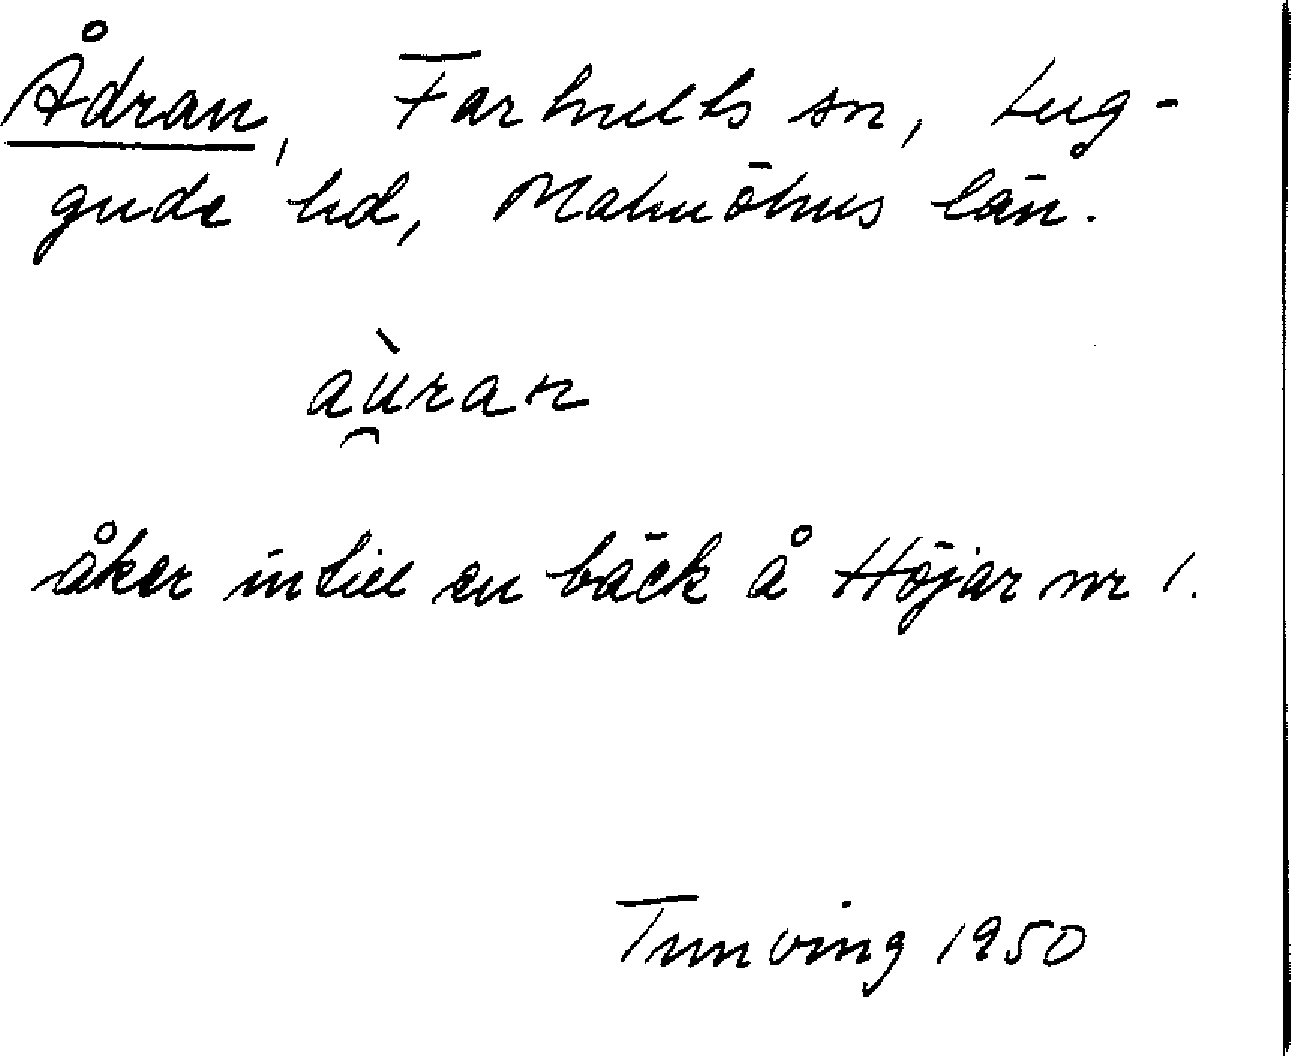 Ådran, Farhults sn, Lug-
gude hd, Malmöhus län.
aù̯ran
åker intill en bäck å Höjar nr 1.
Tunving 1950